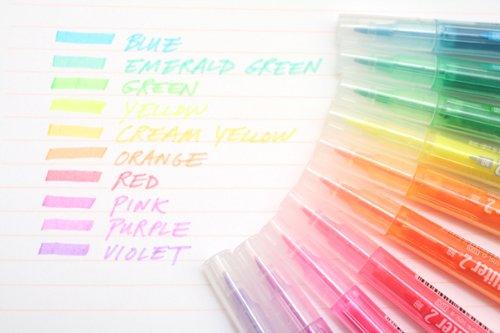 BLUE
EMERALD GREEN
GREEN
YELLOW
CREAM YELLOW
ORANGE
RED
PINK
PURPLE
VIOLET